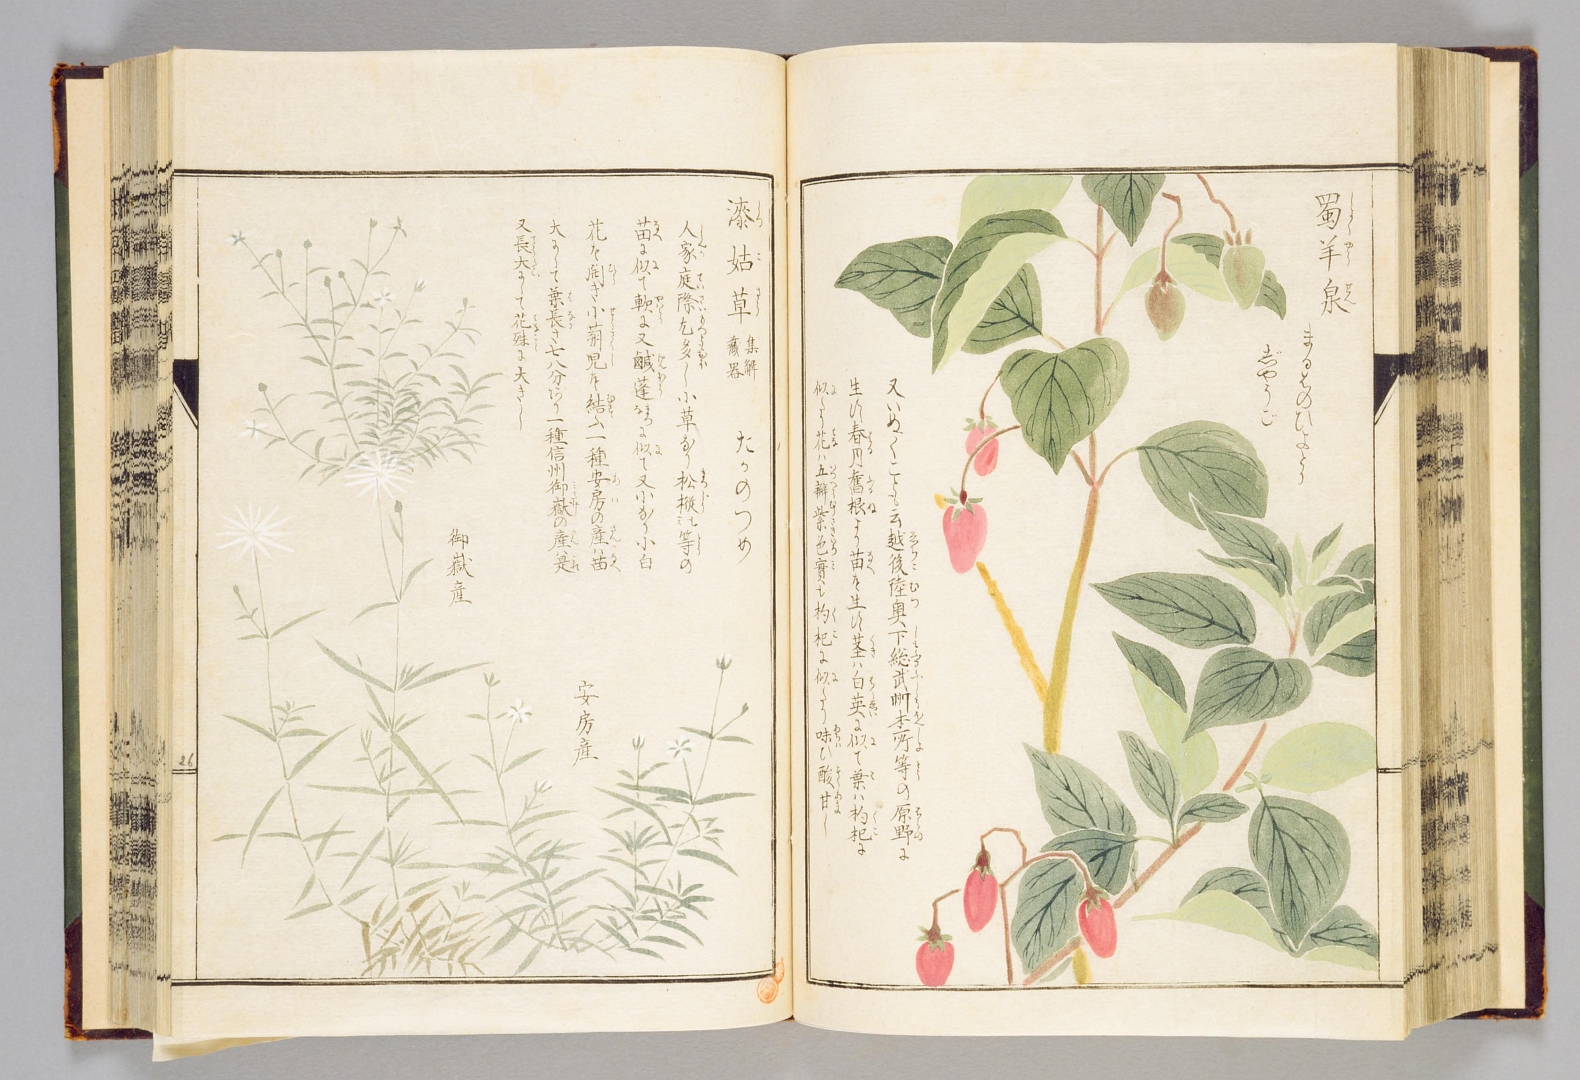 蜀羊泉
まるばのひよどり
じやうご
又いぬくことも云越後陸奥下総武州本所等の原野に
生ず春月舊根より苗を生ず茎ハ白英に似て葉ハ枸杞に
似たり花ハ五瓣紫色實も枸杞に似たり味ひ酸甘し
漆姑草 集解 蔵器 たかのつめ
人家庭際尤多し小草なり松樅等の
苗に似て軟に又鹹蓬に似て又小なり小白
花を開き小蒴児を結ふ一種安房の産ハ苗
大にして葉長さ七八分あり一種信州御嶽の産ハ是
又長大にして花殊に大きし
御嶽産
安房産
26